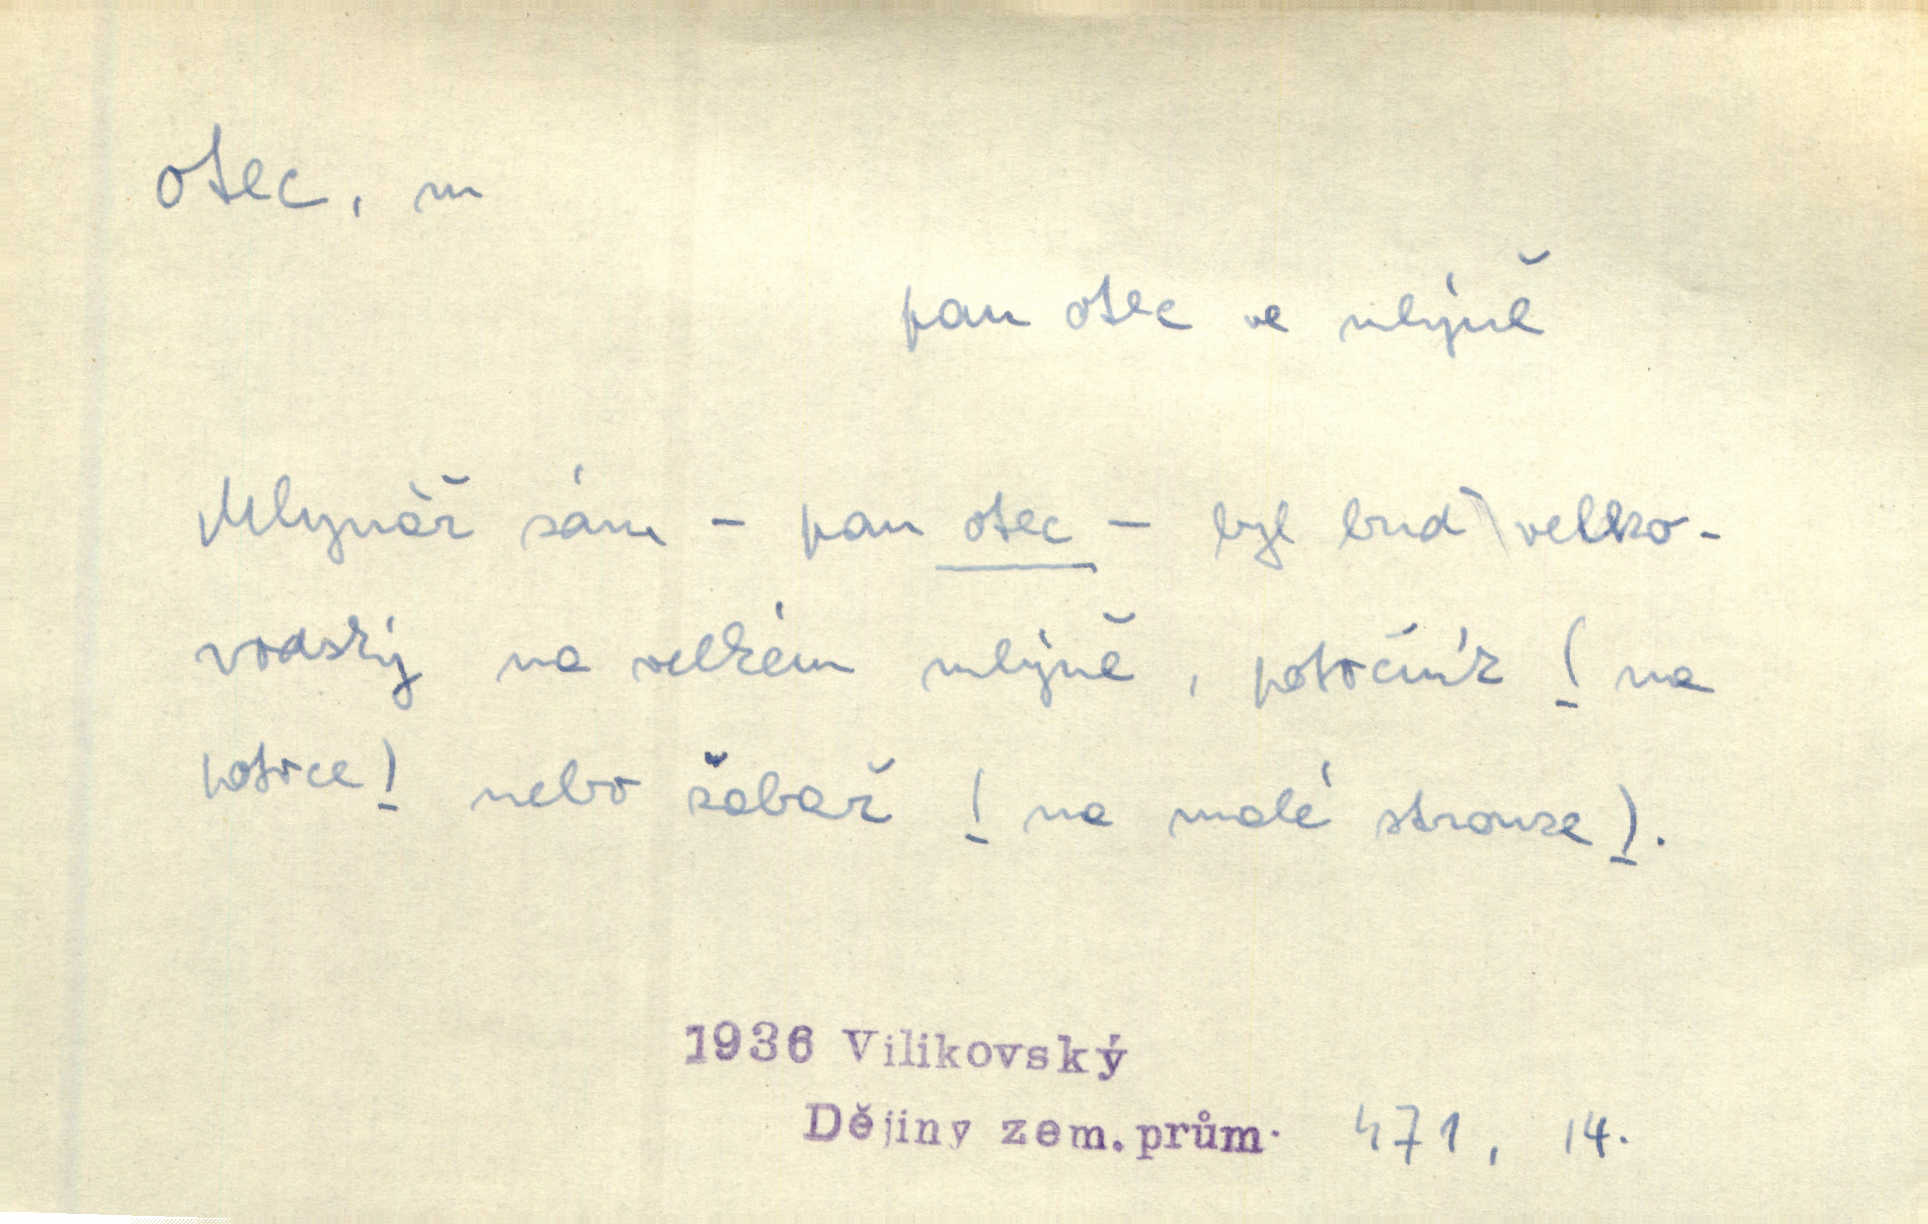 otec, m
pan otec ve mlýně
Mlynář sám – pan otec – byl buď velko-
vodský na velkém mlýně, potočník (na
potoce) nebo šabař (na malé strouze).
1936 Vilikovský
Dějiny zem.prům. 471, 14.